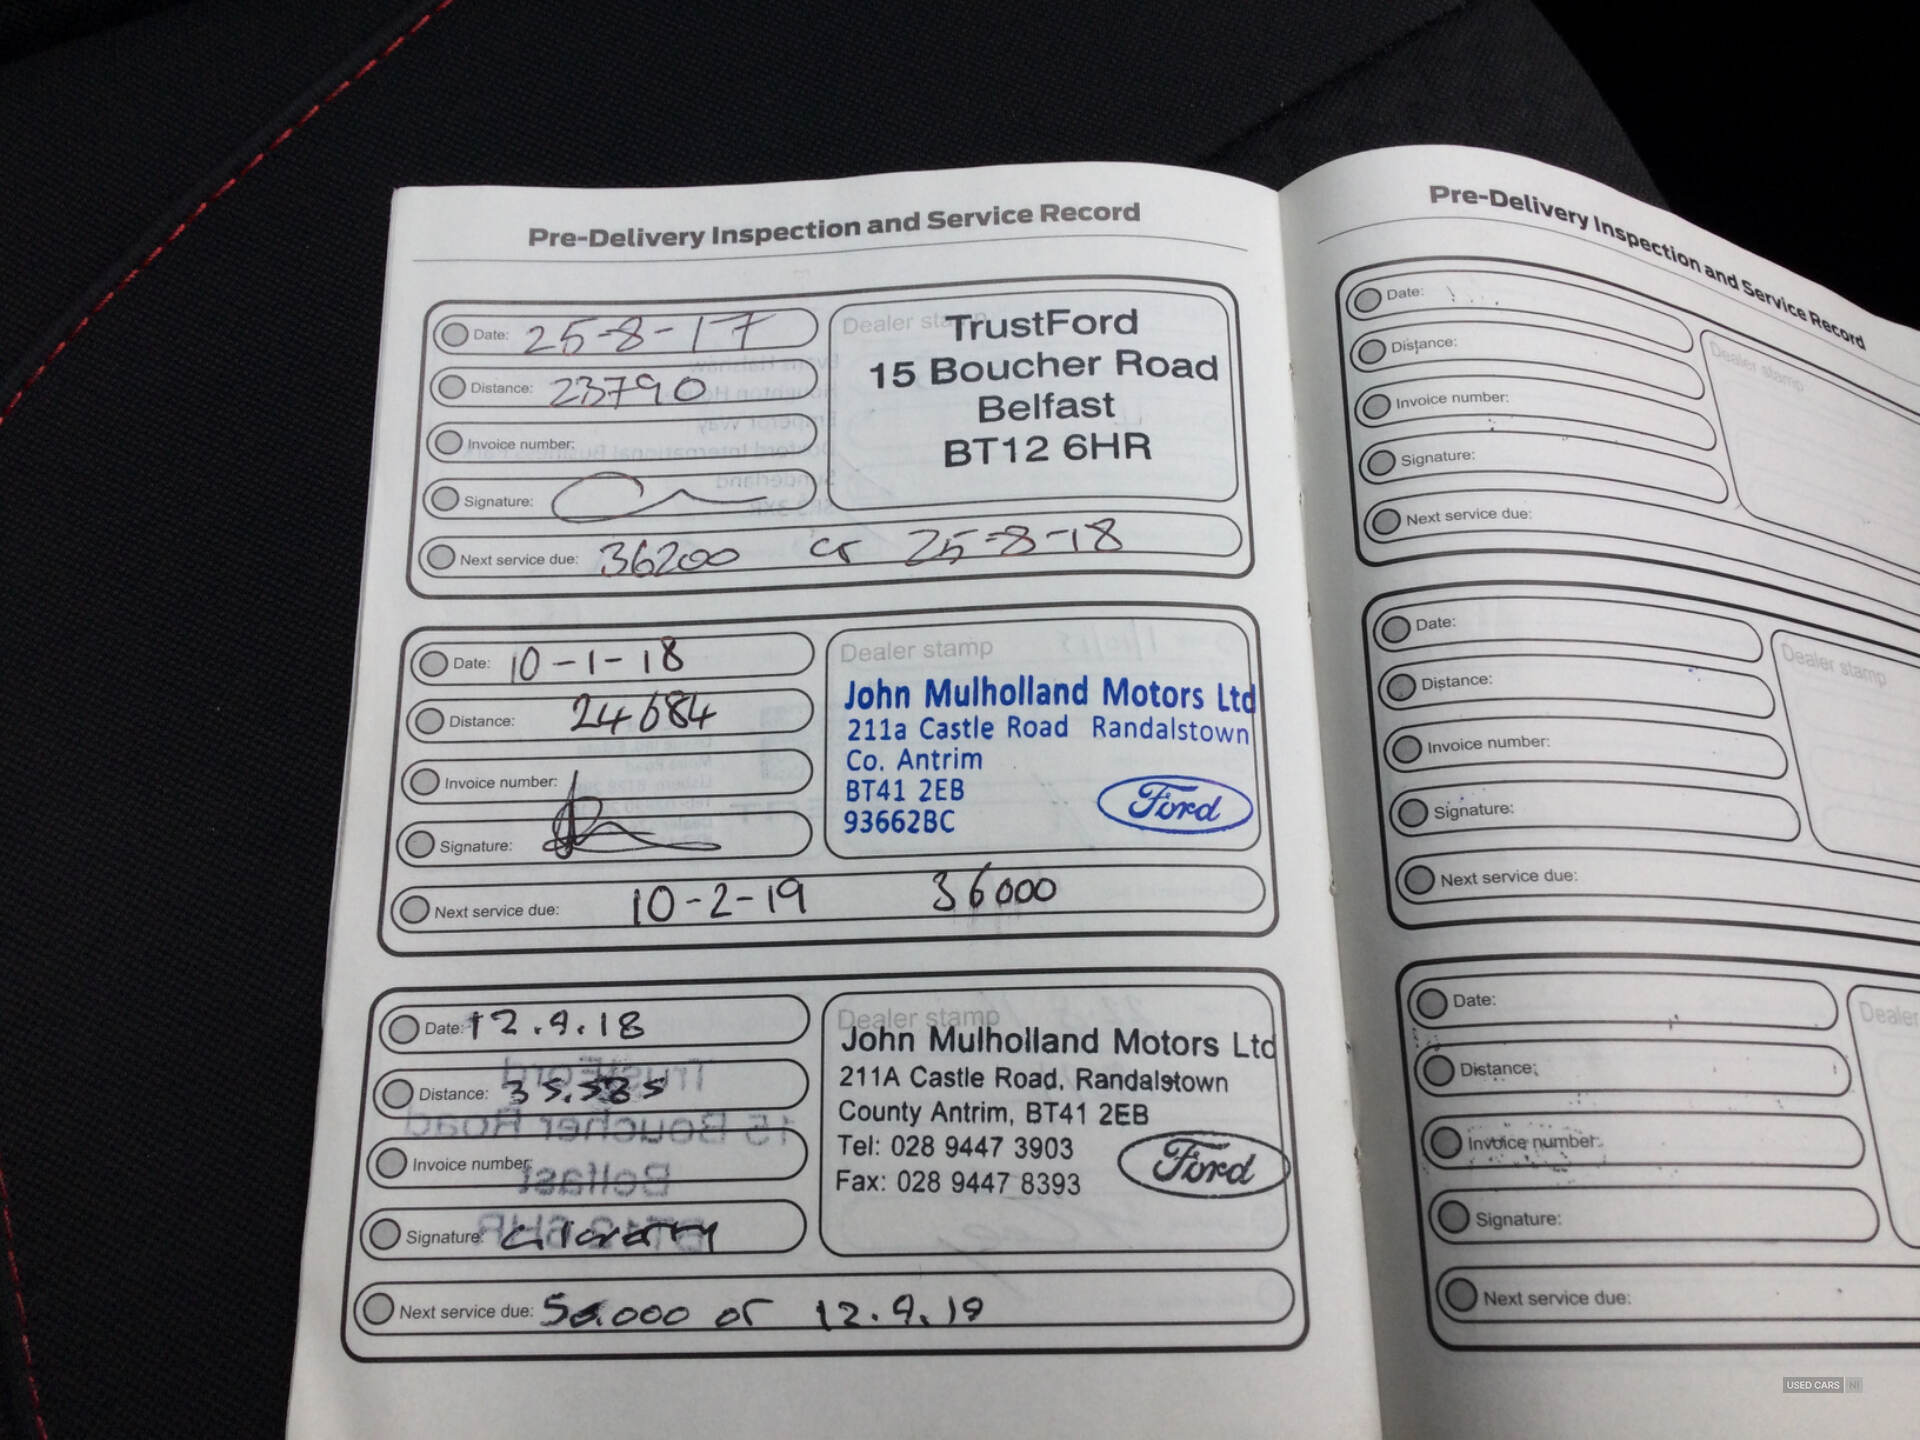 Pre-Delivery Inspection and Service Record
Date: 25-8-17
Distance: 23790
Invoice number:
Signature:
Dealer stamp
TrustFord
15 Boucher Road
Belfast
BT12 6HR
Next service due: 36200 or 25-8-18
Date: 10-1-18
Distance: 24684
Invoice number:
Signature:
Dealer stamp
John Mulholland Motors Ltd
211a Castle Road Randalstown
Co. Antrim
BT41 2EB
93662BC
Ford
Next service due: 10-2-19 36000
Date: 12.9.18
Distance: 35.585
Invoice number:
Signature:
Dealer stamp
John Mulholland Motors Ltd
211A Castle Road, Randalstown
County Antrim, BT41 2EB
Tel: 028 9447 3903
Fax: 028 9447 8393
Ford
Next service due: 50.000 or 12.9.19
Pre-Delivery Inspection and Service Record
Date:
Distance:
Invoice number:
Signature:
Dealer stamp
Next service due:
Date:
Distance:
Invoice number:
Signature:
Dealer stamp
Next service due:
Date:
Distance:
Invoice number:
Signature:
Dealer
Next service due:
USED CARS NI